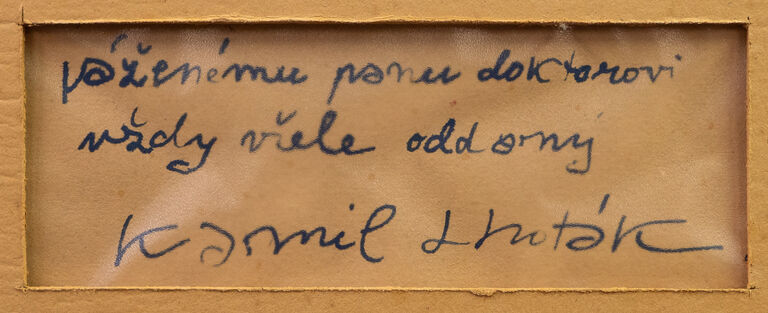 váženému panu doktorovi
vždy vřele oddaný
Kamil Lhoták